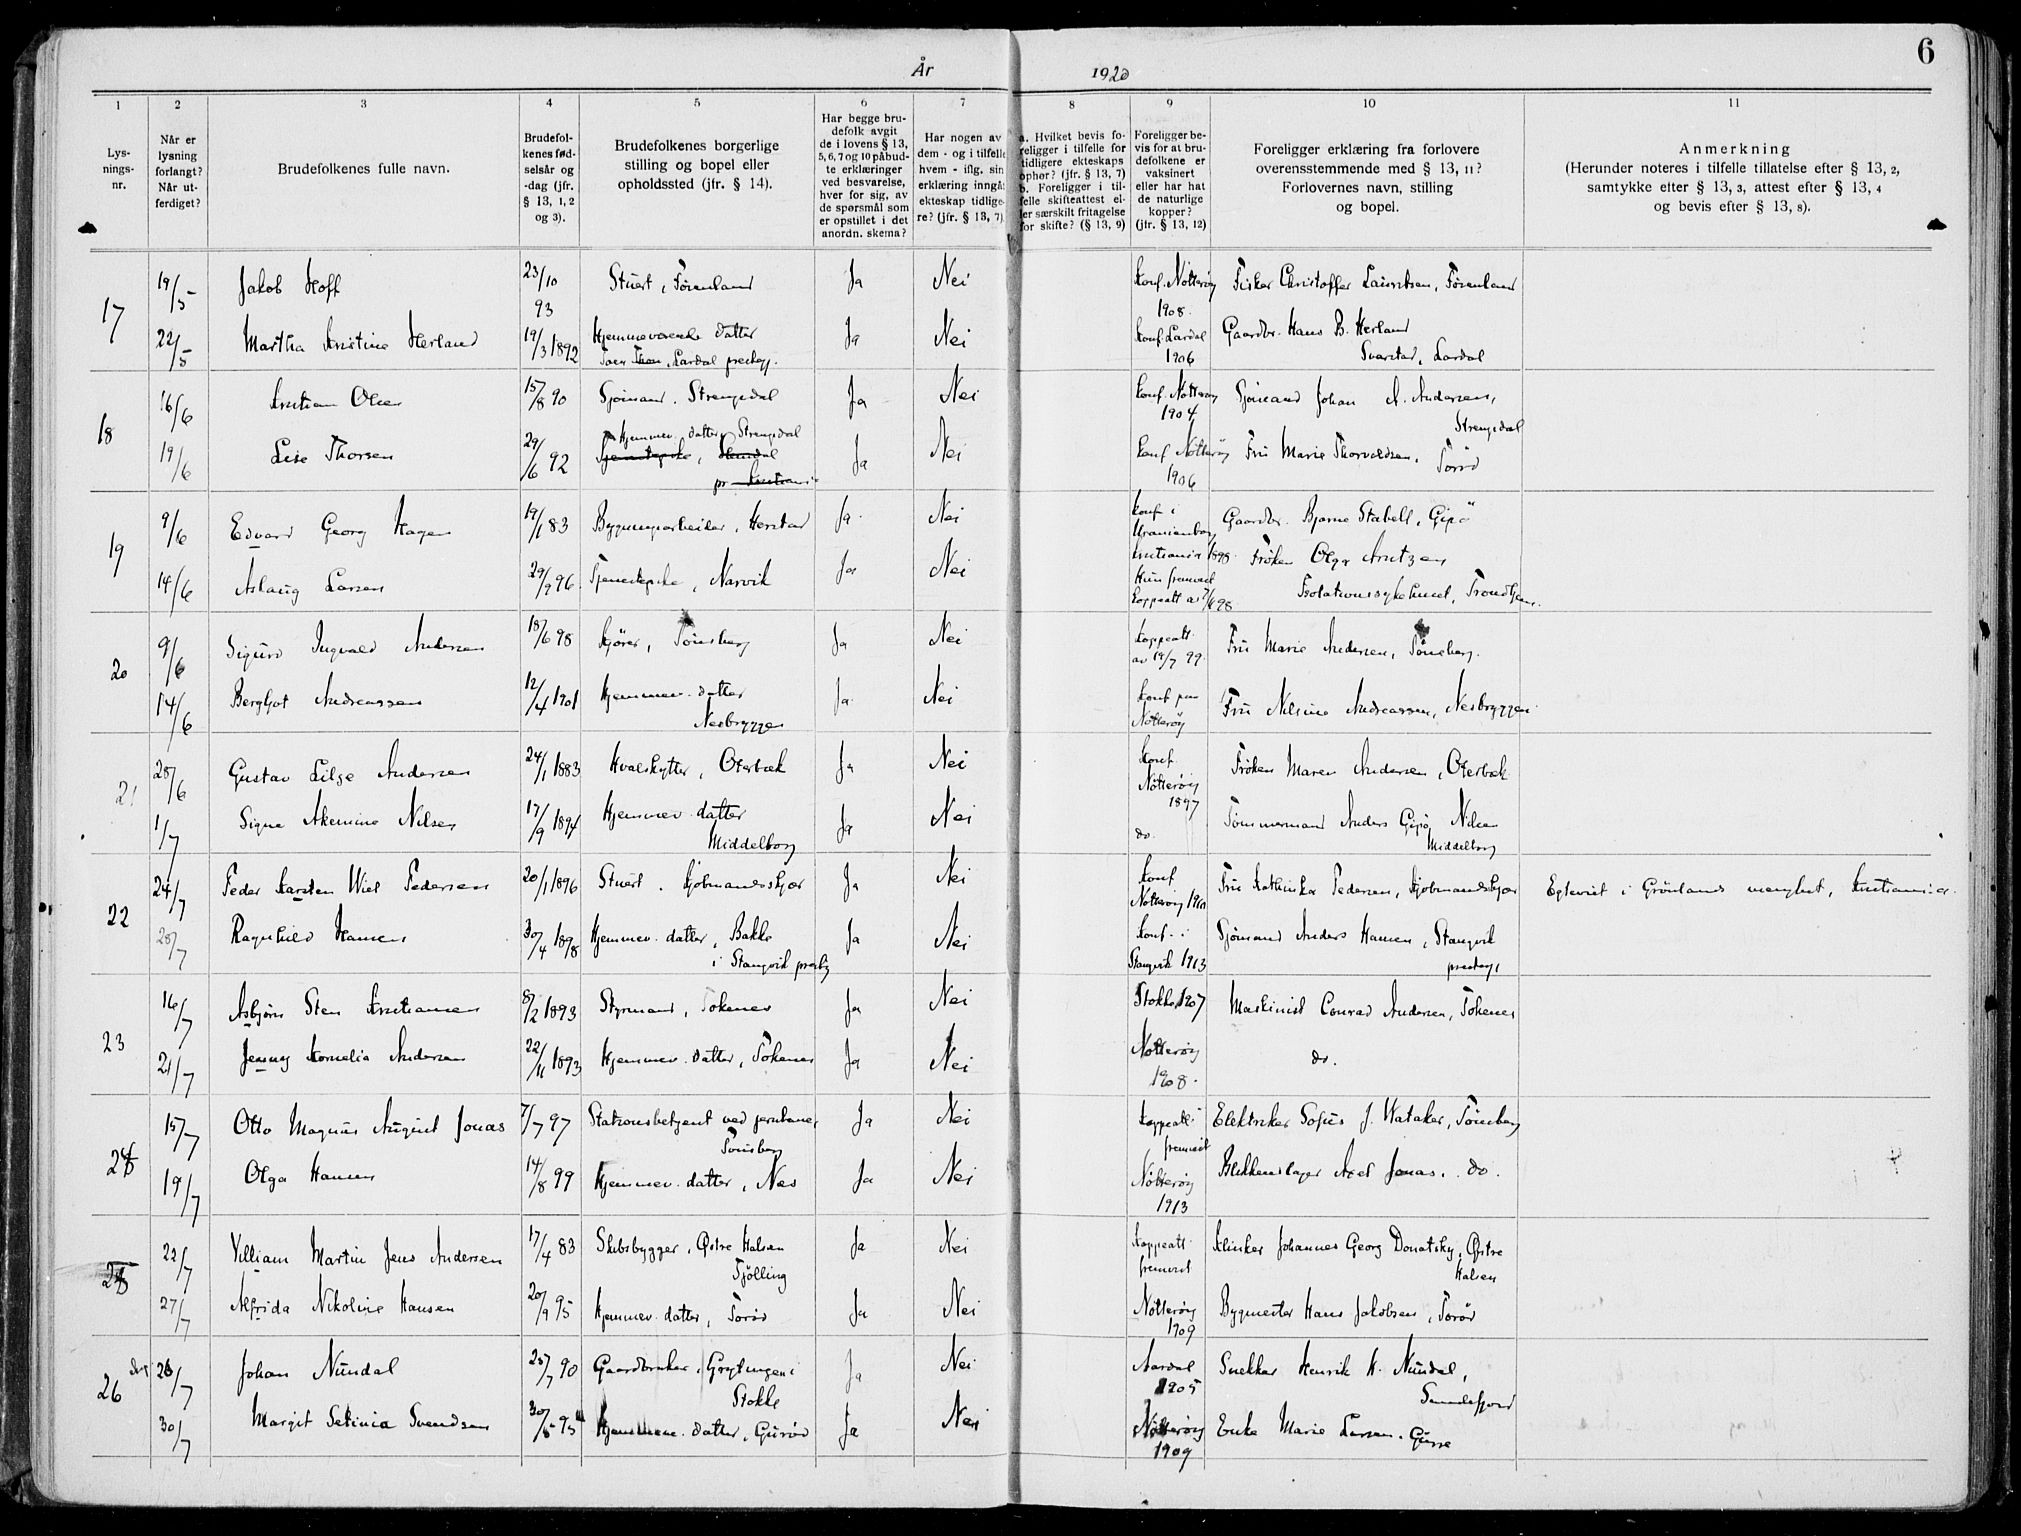 6
År 1920
1 2 3 4 5 6 7 8 9 10 11
Lys-
nings-
nr.
Når er
lysning
forlangt?
Når ut-
ferdiget?
Brudefolkenes fulle navn.
Brudefol-
kenes fød-
selsår og
-dag (jfr.
§ 13, 1, 2
og 3).
Brudefolkenes borgerlige
stilling og bopel eller
opholdssted (jfr. § 14).
Har begge bru-
defolk avgit
de i lovens § 13,
5, 6, 7 og 10 påbud-
te erklæringer
ved besvarelse,
hver for sig, av
de spørsmål som
er opstillet i det
anordn. skema?
Har nogen av
dem - og i tilfelle
hvem - iflg. sin
erklæring inngåt
ekteskap tidlige-
re? (jfr. § 13, 7)
a. Hvilket bevis fo-
religger i tilfelle for
tidligere ekteskaps
ophør? (jfr. § 13, 7)
b. Foreligger i til-
felle skifteattest el-
ler særskilt fritagelse
for skifte? (§ 13, 9)
Foreligger be-
vis for at bru-
defolkene er
vaksinert
eller har hat
de naturlige
kopper?
(jfr. § 13, 12)
Foreligger erklæring fra forlovere
overensstemmende med § 13, 11?
Forlovernes navn, stilling
og bopel.
Anmerkning
(Herunder noteres i tilfelle tillatelse efter § 13, 2,
samtykke etter § 13, 3, attest efter § 13, 4
og bevis efter § 13, 8).
17
19/5 Jakob Hoff 23/10 93 Stuert, Ja Nei Konf. Nøtterøy 1908. Fisker Christoffer Lauritsen,
22/5 Martha Kristine Herland 19/3 1892 Hjemmeværende datter Ja Nei Konf. Lardal 1906 Gaardbr. Hans B. Herland
Lardal prestegj. Svarstad, Lardal
18
16/6 Kristian Olsen 15/8 90 Sjømand. Strengsdal Ja Nei Konf. Nøtterøy 1904 Sjømand Johan A. Andersen,
Strengsdal
19/6 Lise Thorsen 29/6 92 Hjemmev. datter, Strengsdal Ja Nei Konf. Nøtterøy 1906 Fru Marie Thorvaldsen, Torød
Tjenestepike,
pr Kristiania
19
9/6 Edvard Georg Hagen 19/1 83 Bygningsarbeider, Ja Nei Konf i Uranienborg Kristiania 1898. Gaardbr. Bjarne Stabell, Gipø
14/6 Aslaug Larsen 29/9 96. Tjenestepike, Narvik Ja Nei Hun fremvist koppeatt av 7/6 98 Frøken Olga Arntzen
Isolationssykehuset, Trondhjem.
20
9/6 Sigurd Ingvald Andersen 18/6 98 Kjører, Tønsberg Ja Nei Koppeatt. av 19/7 99. Fru Marie Andersen, Tønsberg.
14/6 Bergljot Andreassen 12/4 1901 Hjemmev. datter Ja Nei Konf paa Nøtterøy Fru Nilsine Andreassen, Nesbryggen.
Nesbryggen
21
28/6 Gustav Lilje Andersen 24/1 1883 Hvalskytter, Oterbæk Ja Nei Konf. Nøtterøy 1897 Frøken Maren Andersen, Oterbæk
1/7 Signe Akemine Nilsen 17/9 1894 Hjemmev. datter Ja Nei do. Tømmermand Anders Gipø Nilsen
Middelborg Middelborg
22
24/7 Peder Karsten Wiel Pedersen 20/1 1896 Stuert. Kjøbmandskjær Ja Nei Konf. Nøtterøy Fru Kathinka Pedersen, Kjøbmandskjær Egteviet i Grønlands menighet, Kristiania.
28/7 Ragnhild Hansen 30/4 1898 Hjemmev. datter, Bakke Ja Nei Konf. i Stangvik 1913 Sjømand Anders Hansen, Stangvik
i Stangvik prestegj prestegj
23
16/7 Asbjørn Sten Kristiansen 8/2 1893 Styrmand, Tokenes Ja Nei Stokke 1907 Maskinist Conrad Andersen, Tokenes
21/7 Jenny Kornelia Andersen 22/11 1893 Hjemmev. datter, Tokenes Ja Nei Nøtterøy 1908. do.
24
15/7 Otto Magnus August Jonas 7/7 97 Stationsbetjent ved jernbanen Ja Nei Koppeatt. fremvist Elektriker Sofus J. Wataker, Tønsberg
Tønsberg
19/7 Olga Hansen 14/8 99 Hjemmev. datter, Nes Ja Nei Nøtterøy 1913 Blikkenslager Axel Jonas. do.
22/7 Villiam Martin Jens Andersen 17/4 83 Skibsbygger, Østre Halsen Ja Nei Koppeatt. fremvist Klinker Johannes Georg Donatsky, Østre
Tjølling Halsen
27/7 Alfrida Nikoline Hansen 20/9 95 Hjemmev. datter, Torød Ja Nei Nøtterøy 1909 Bygmester Hans Jakobsen, Torød
26
28/7 Johan Nundal 25/7 90 Gaardbruker, Grytingen i Ja Nei Aardal 1905 Snekker Henrik H. Nundal,
Stokke Sandefjord
30/7 Margit Selinia Svendsen Hjemmev. datter, Ja Nei Nøtterøy 1909 Enke Marie Larsen.